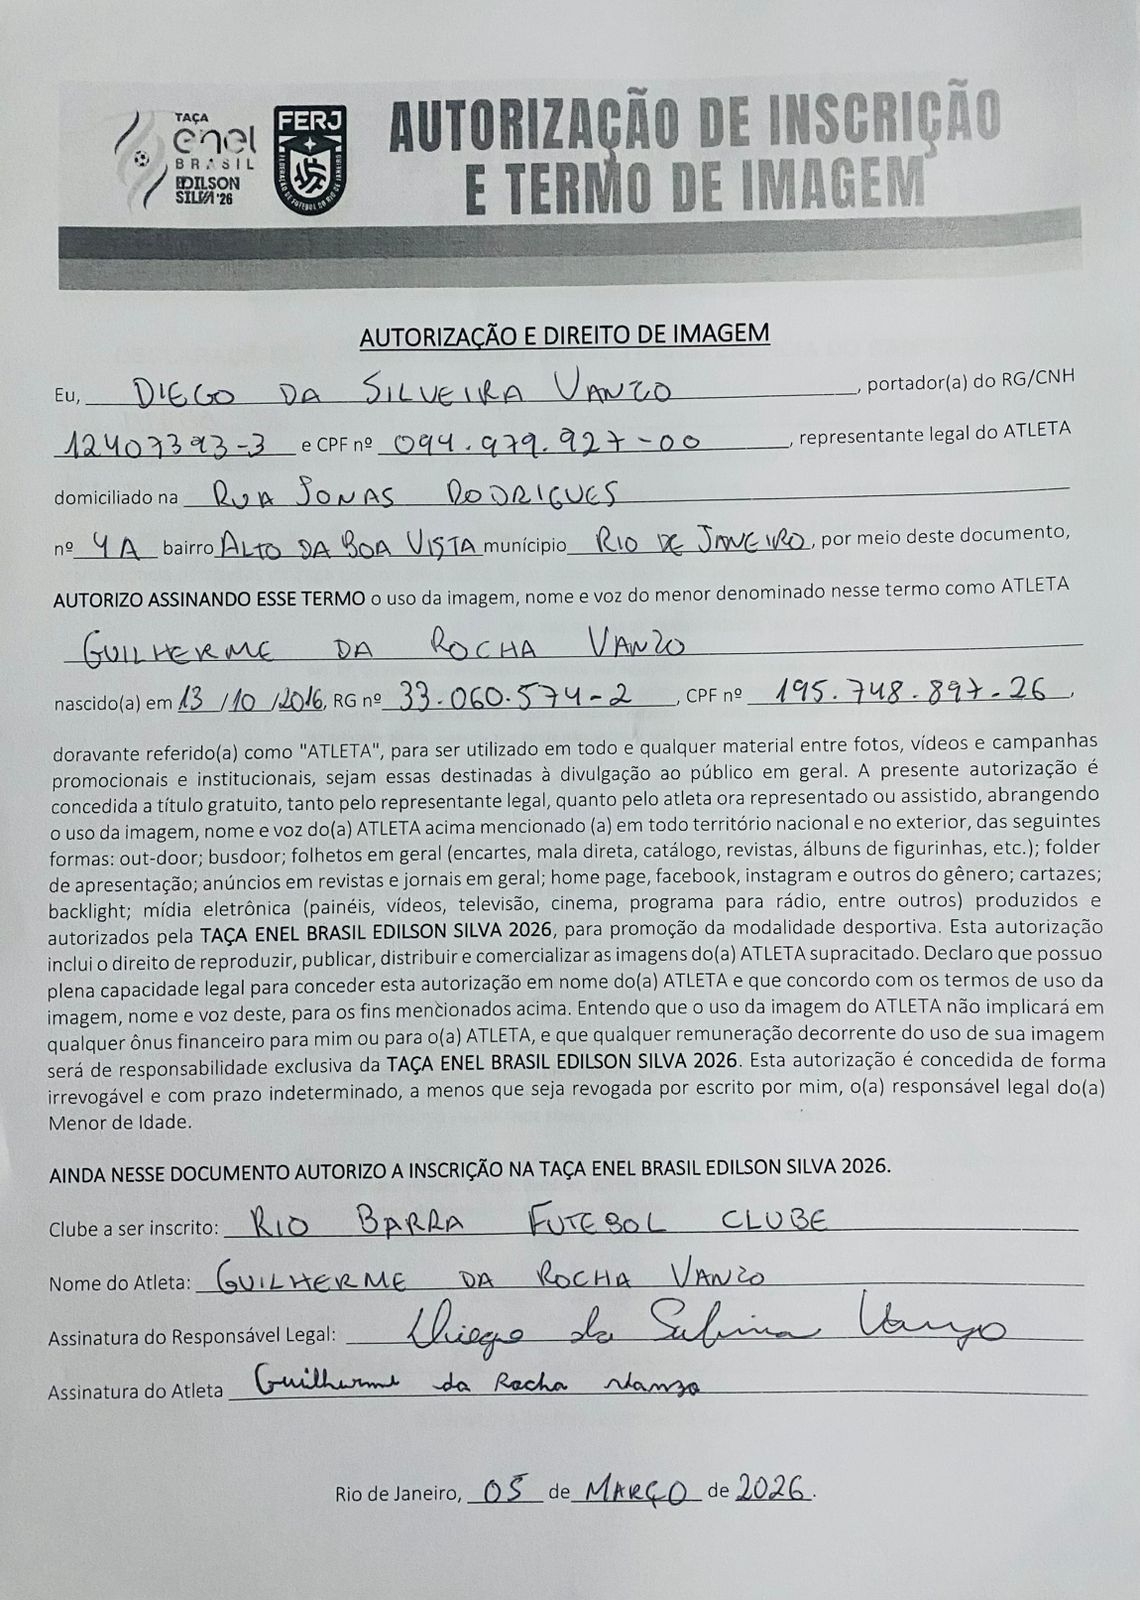 TAÇA
enel
BRASIL
EDILSON
SILVA '26
FERJ
FEDERAÇÃO DE FUTEBOL DO RIO DE JANEIRO
AUTORIZAÇÃO DE INSCRIÇÃO
E TERMO DE IMAGEM
AUTORIZAÇÃO E DIREITO DE IMAGEM
Eu, DIEGO DA SILVEIRA VANZO, portador(a) do RG/CNH
12407393-3 e CPF nº 094.979.927-00, representante legal do ATLETA
domiciliado na RUA JONAS RODRIGUES
nº 4A bairro ALTO DA BOA VISTA munícipio RIO DE JANEIRO, por meio deste documento,
AUTORIZO ASSINANDO ESSE TERMO o uso da imagem, nome e voz do menor denominado nesse termo como ATLETA
GUILHERME DA ROCHA VANZO
nascido(a) em 13/10/2016, RG nº 33.060.574-2, CPF nº 195.748.897-26,
doravante referido(a) como "ATLETA", para ser utilizado em todo e qualquer material entre fotos, vídeos e campanhas
promocionais e institucionais, sejam essas destinadas à divulgação ao público em geral. A presente autorização é
concedida a título gratuito, tanto pelo representante legal, quanto pelo atleta ora representado ou assistido, abrangendo
o uso da imagem, nome e voz do(a) ATLETA acima mencionado (a) em todo território nacional e no exterior, das seguintes
formas: out-door; busdoor; folhetos em geral (encartes, mala direta, catálogo, revistas, álbuns de figurinhas, etc.); folder
de apresentação; anúncios em revistas e jornais em geral; home page, facebook, instagram e outros do gênero; cartazes;
backlight; mídia eletrônica (painéis, vídeos, televisão, cinema, programa para rádio, entre outros) produzidos e
autorizados pela TAÇA ENEL BRASIL EDILSON SILVA 2026, para promoção da modalidade desportiva. Esta autorização
inclui o direito de reproduzir, publicar, distribuir e comercializar as imagens do(a) ATLETA supracitado. Declaro que possuo
plena capacidade legal para conceder esta autorização em nome do(a) ATLETA e que concordo com os termos de uso da
imagem, nome e voz deste, para os fins mencionados acima. Entendo que o uso da imagem do ATLETA não implicará em
qualquer ônus financeiro para mim ou para o(a) ATLETA, e que qualquer remuneração decorrente do uso de sua imagem
será de responsabilidade exclusiva da TAÇA ENEL BRASIL EDILSON SILVA 2026. Esta autorização é concedida de forma
irrevogável e com prazo indeterminado, a menos que seja revogada por escrito por mim, o(a) responsável legal do(a)
Menor de Idade.
AINDA NESSE DOCUMENTO AUTORIZO A INSCRIÇÃO NA TAÇA ENEL BRASIL EDILSON SILVA 2026.
Clube a ser inscrito: RIO BARRA FUTEBOL CLUBE
Nome do Atleta: GUILHERME DA ROCHA VANZO
Assinatura do Responsável Legal: Diego da Silveira Vanzo
Assinatura do Atleta Guilherme da Rocha Vanzo
Rio de Janeiro, 05 de MARÇO de 2026.